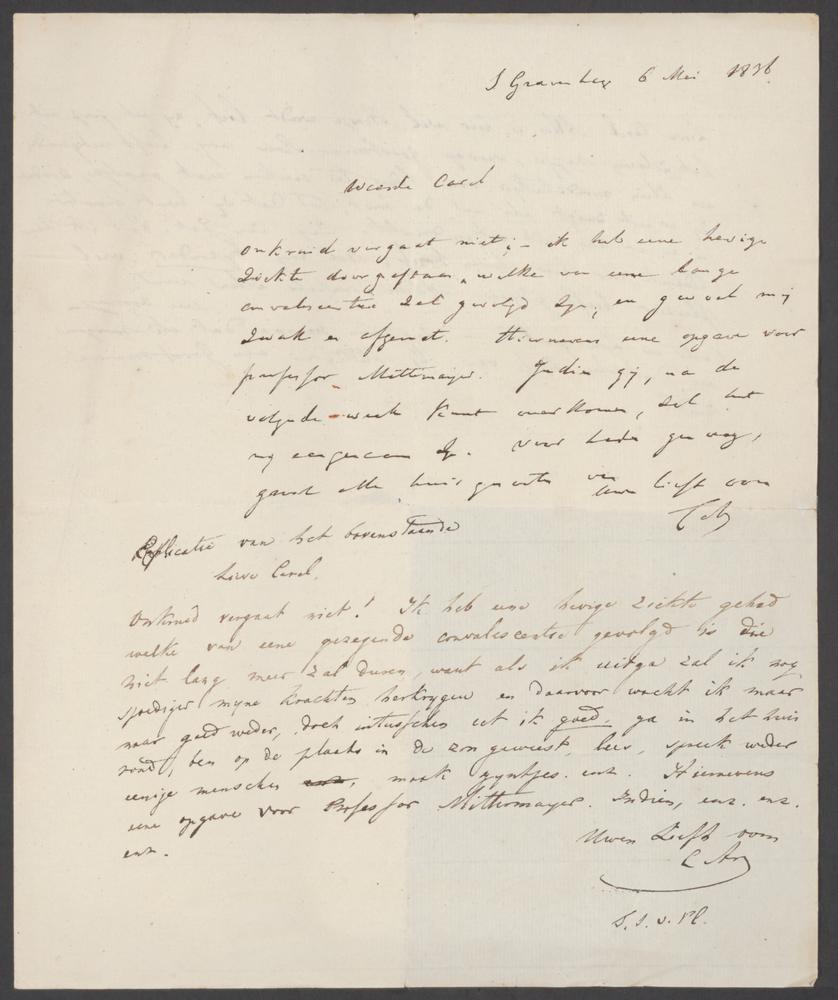 S Gravenhage 6 Mei 1836
Waarde Carel
onkruid vergaat niet; – ik heb eene hevige
Ziekte doorgestaan, welke van eene lange
convalescentie zal gevolgd zyn, en gevoel mij
zwak en afgemat. Hiernevens eene opgave voor
professor Mittermayer. Indien gij, na de
volgende week kunt overkomen, zal het
my aangenaam zyn. Voor heden genoeg,
groet alle huisgenooten van
uwen liefh oom
Explicatie van het bovenstaande
Lieve Carel.
Onkruid vergaat niet! Ik heb eene hevige ziekte gehad
welke van eene gezegende convalescentie gevolgd is die
niet lang meer zal duren, want als ik uitga zal ik nog
spoediger myne krachten herkrygen en daarvoor wacht ik maar
naar goed weder, doch intusschen eet ik goed, ga in het huis
rond, ben op de plaats in de zon geweest, lees, spreek weder
eenige menschen, maak gryntjes. enz. Hiernevens
eene opgave voor Professor Mittermayer. Indien, enz. enz.
enz.
Uwen Liefh oom